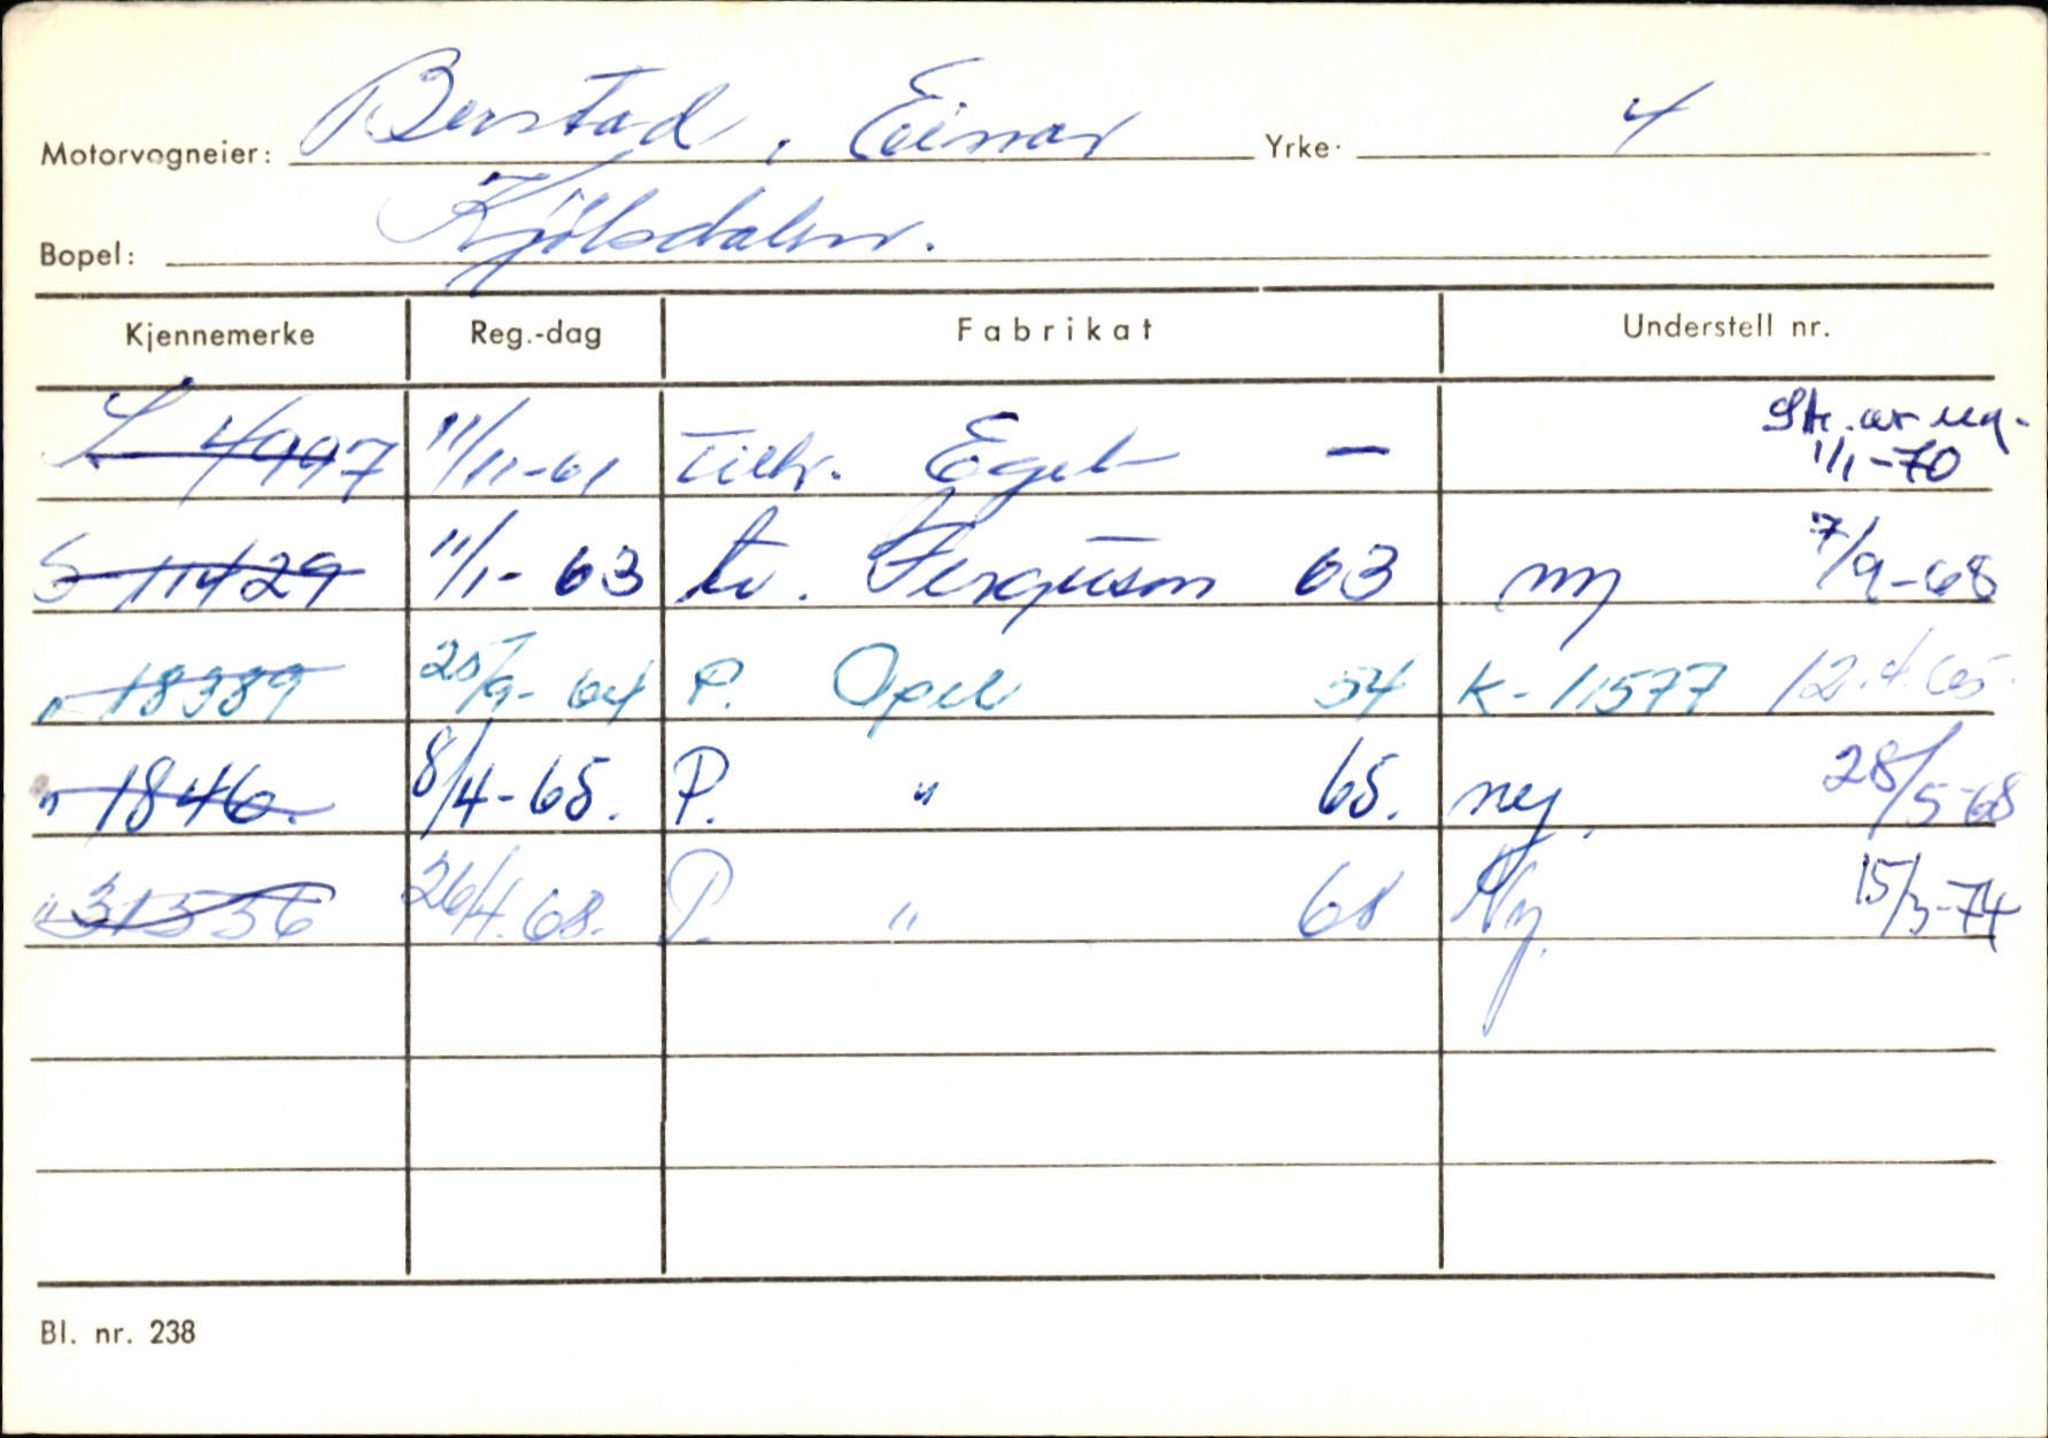 Motorvogneier: Berstad, Einar Yrke. 4
Bopel: Kjölsdalen.
Kjennemerke Reg.-dag Fabrikat Understell nr.
4997 11/11-61 Tilh. Eget — Str. av reg. 1/1-70
S-11429 11/1-63 tr. Ferguson 63 ny 7/9-68
" 18389 25/9-64 P. Opel 54 K-11577 12.4.65.
" 1846. 8/4-65. P. " 65. ny. 28/5-68
" 31556 26/4.68. P. " 68 Ny. 15/3-74
Bl. nr. 238